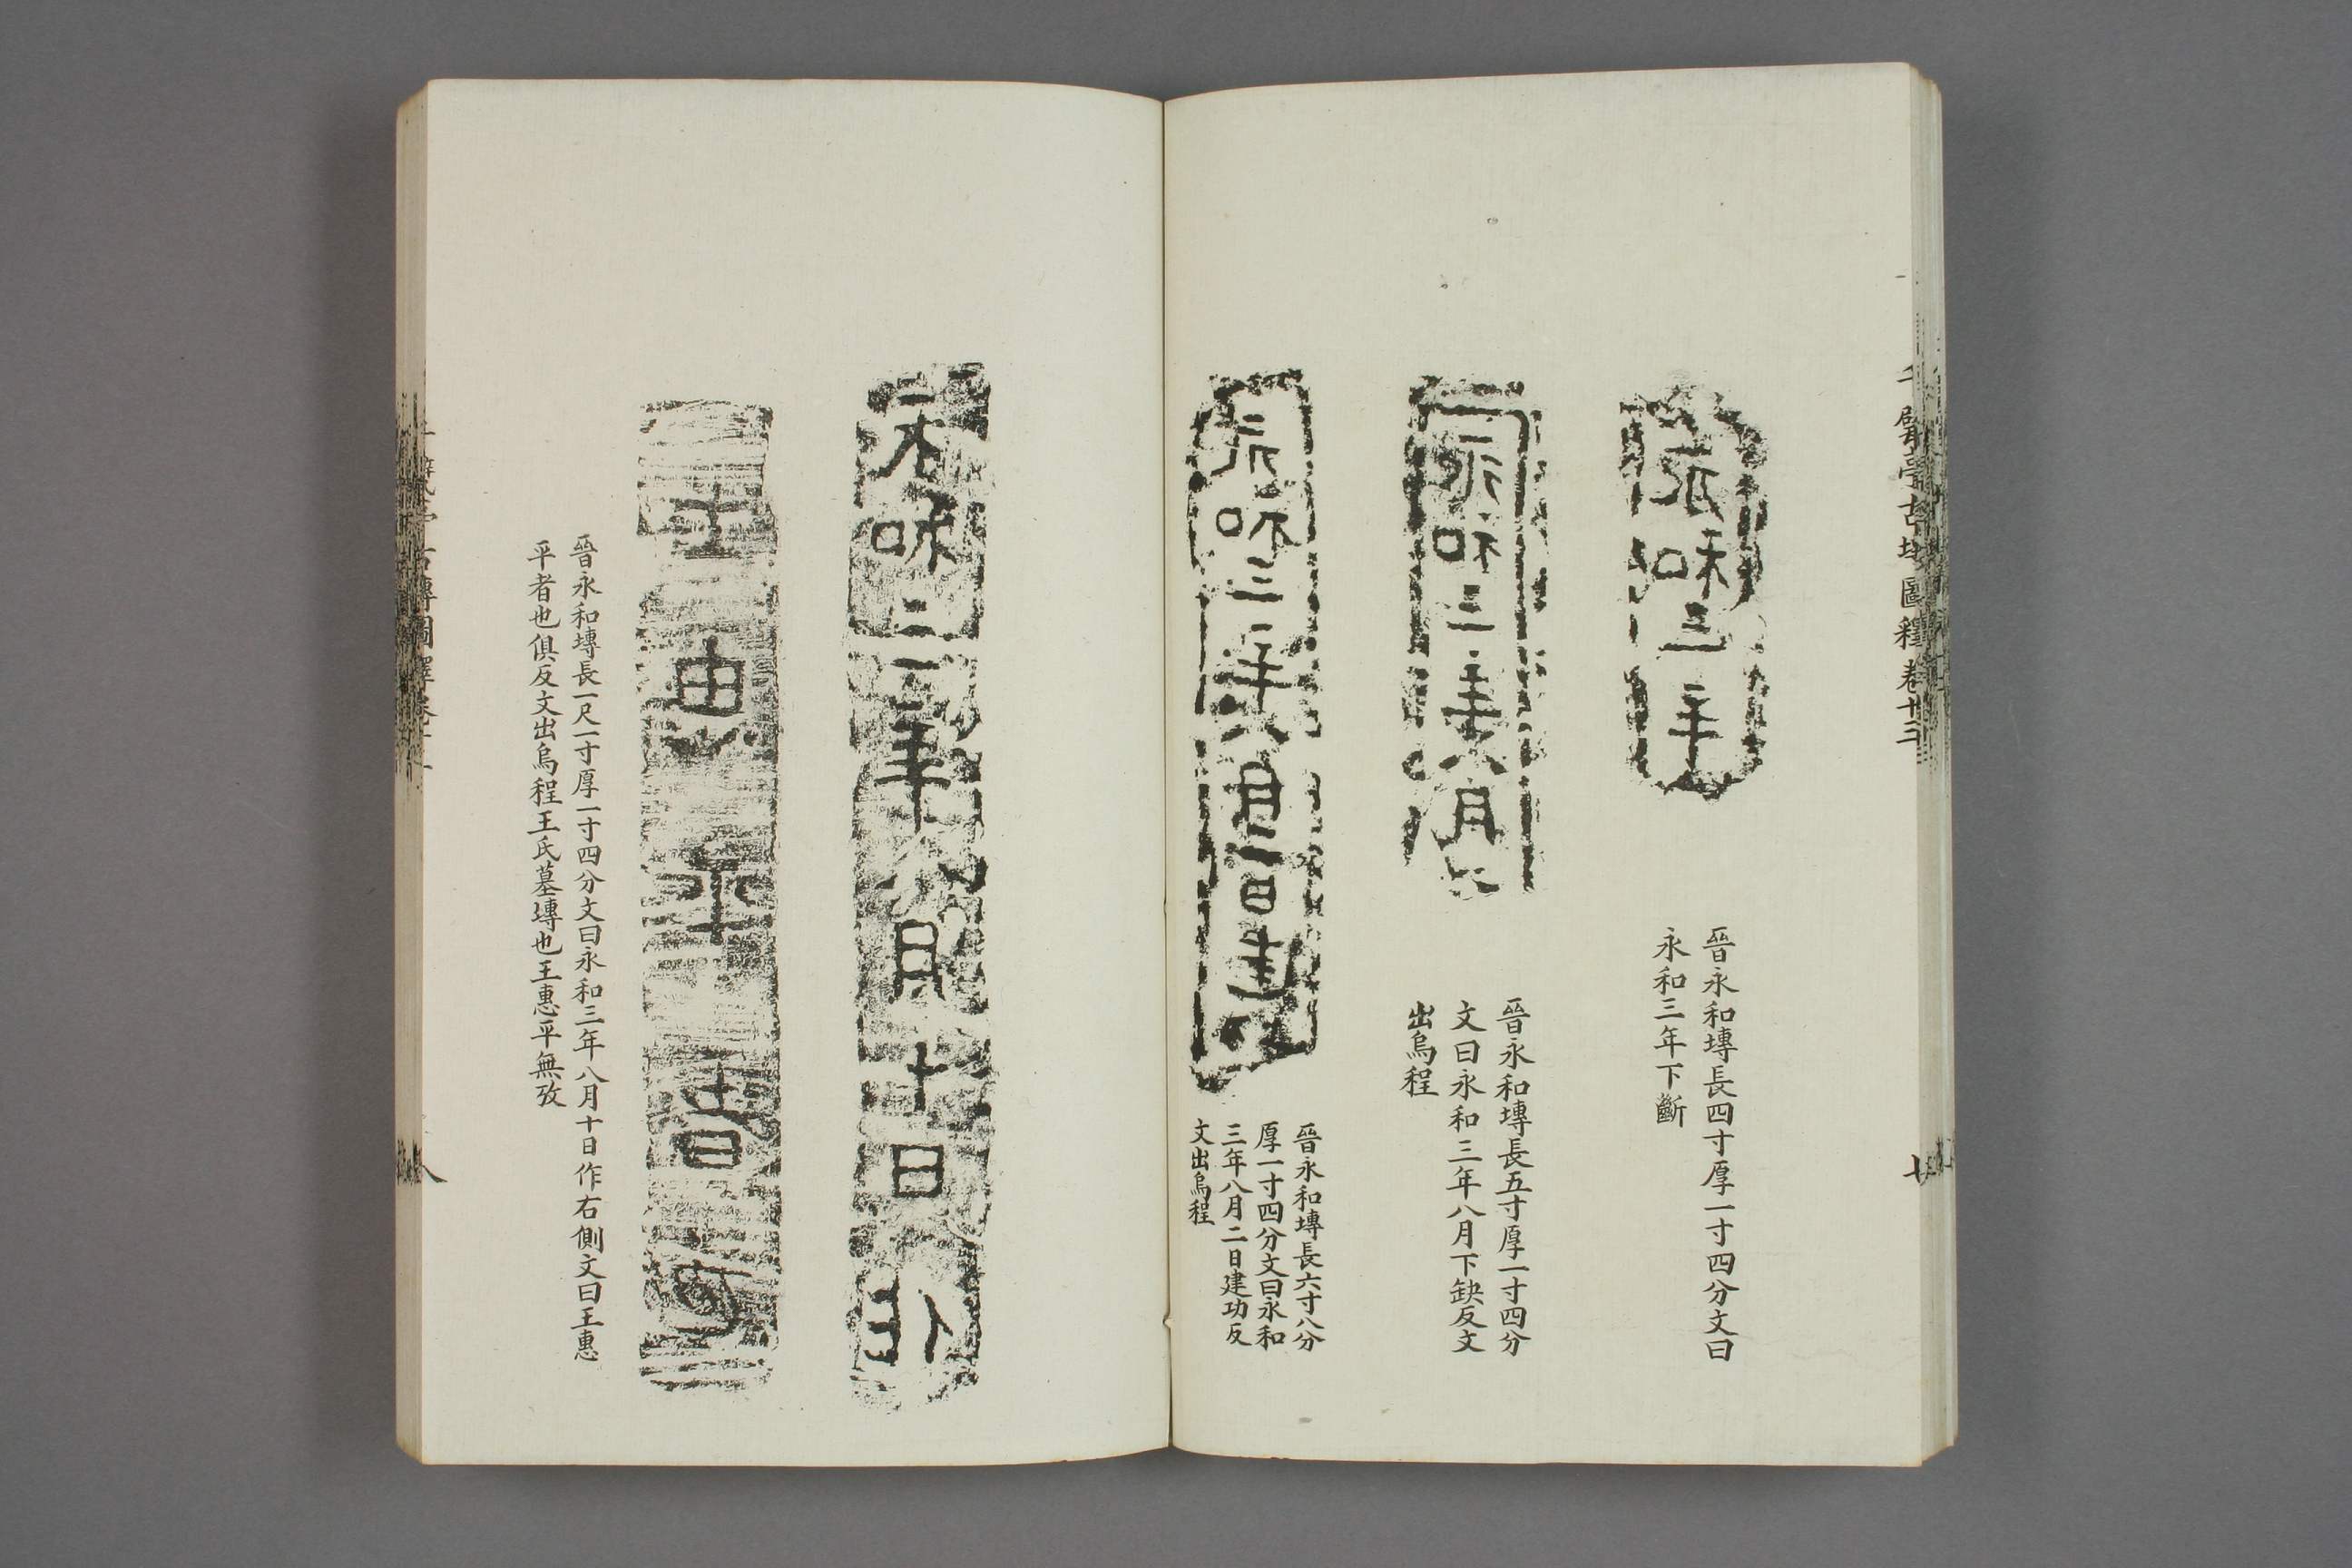 永和三年
晉永和塼長四寸厚一寸四分文曰
永和三年下斷
永和三年八月
晉永和塼長五寸厚一寸四分
文曰永和三年八月下缺反文
出烏程
永和三年八月二日建功
晉永和塼長六寸八分
厚一寸四分文曰永和
三年八月二日建功反
文出烏程
永和三年八月十日作
晉永和塼長一尺一寸厚一寸四分文曰永和三年八月十日作右側文曰王惠
平者也俱反文出烏程王氏墓塼也王惠平無攷
八